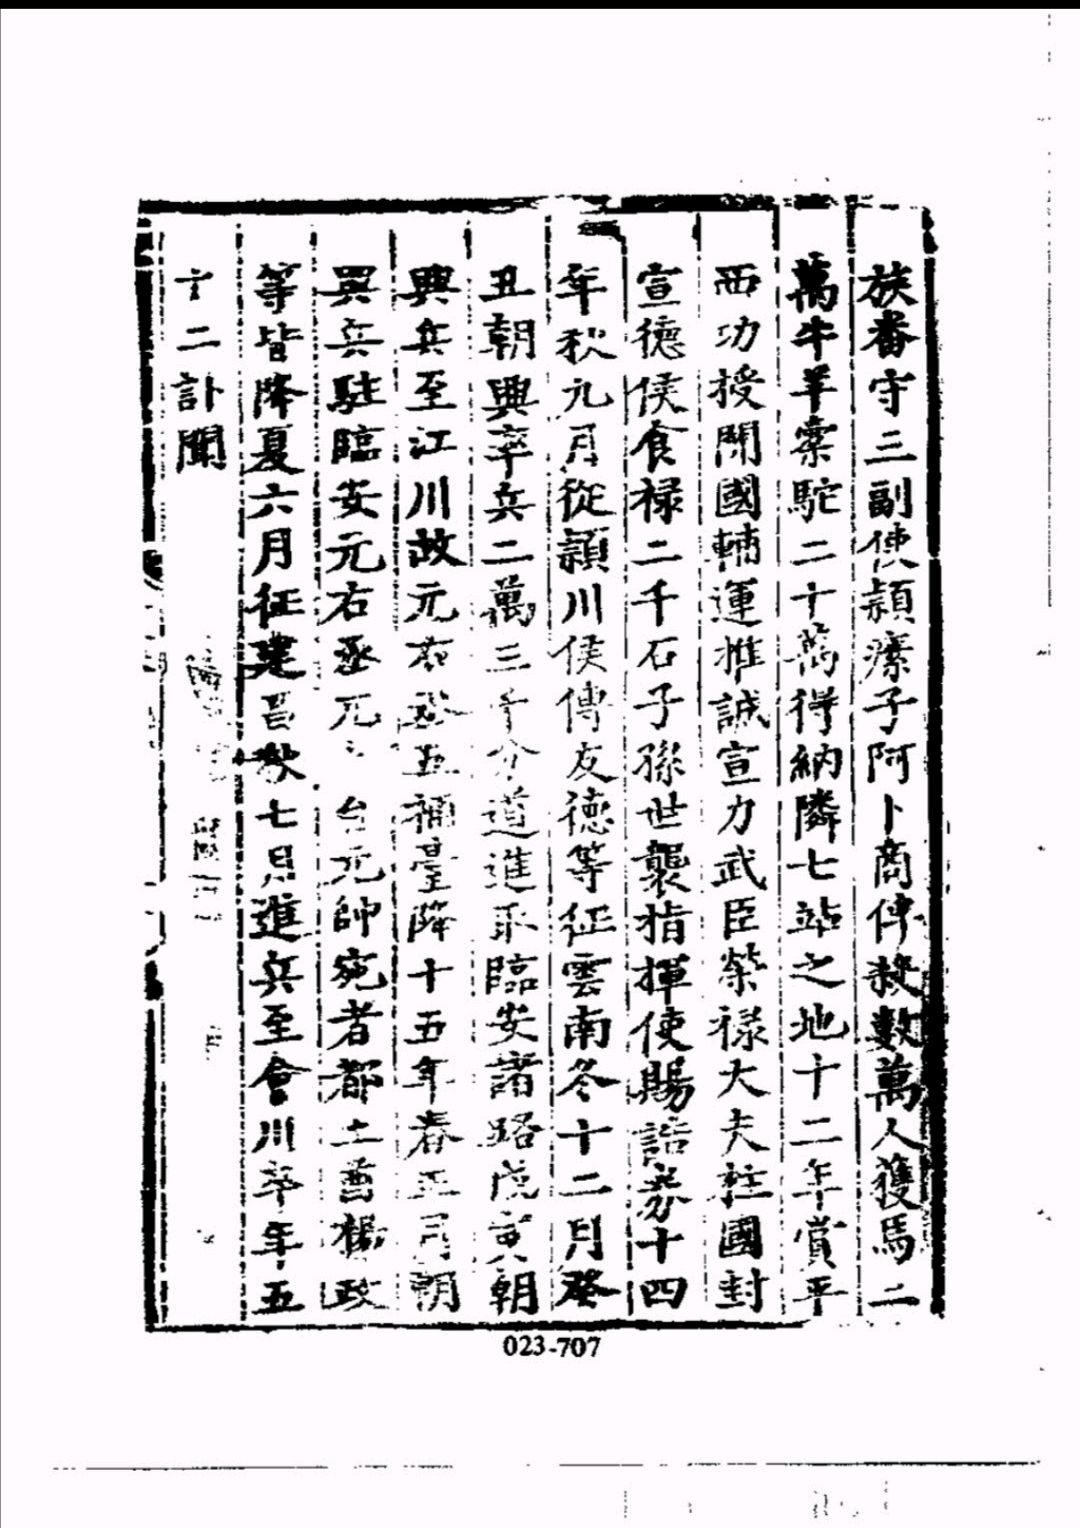 族番守三副使頴瘰子阿卜商俾殺數萬人獲馬二
萬牛羊槖駝二十萬得納隣七站之地十二年賞平
西功授開國輔運推誠宣力武臣榮禄大夫柱國封
宣德侯食禄二千石子孫世襲指揮使賜誥券十四
年秋九月從頴川侯傅友德等征雲南冬十二月癸
丑朝興率兵二萬三千分道進取臨安諸路戊寅朝
興兵至江川故元右丞五福臺降十五年春正月朝
興兵駐臨安元右丞兀 台元帥宛者都土酋楊政
等皆降夏六月征建昌秋七月進兵至會川卒年五
十二訃聞
023-707